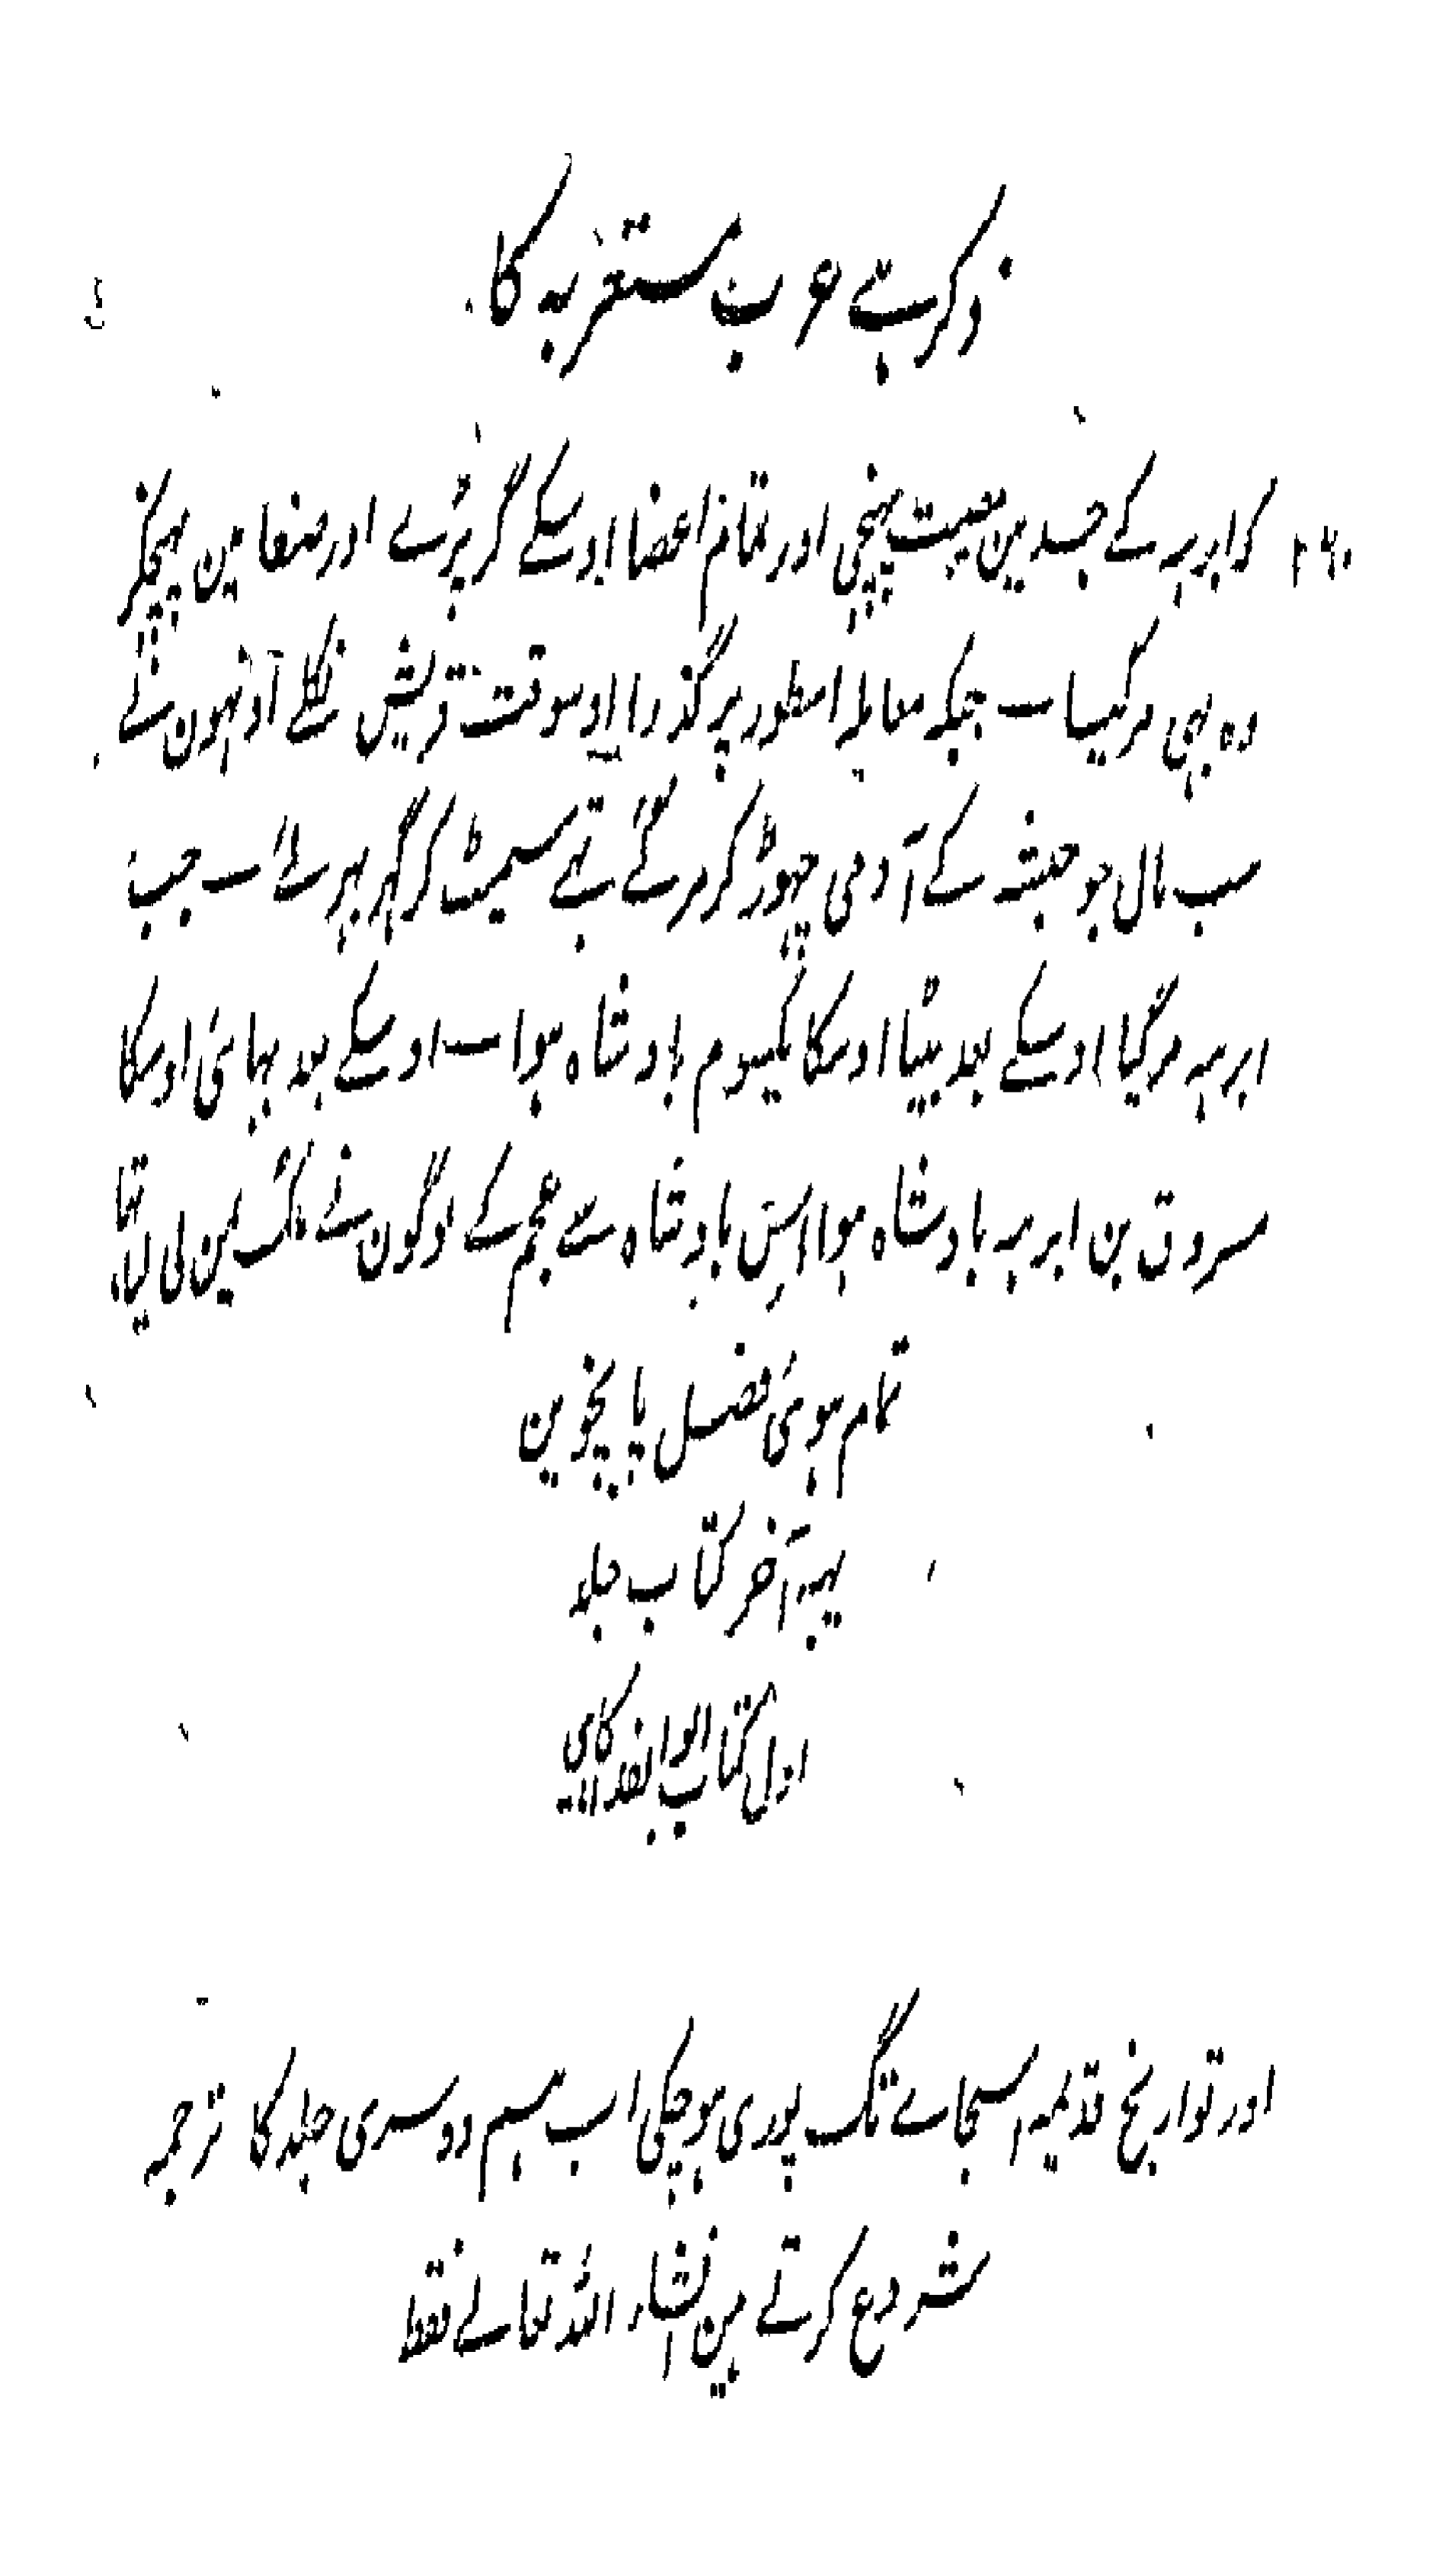 ذکر ہے عرب مستعربہ کا
۲۶۰ کہ ابرہہ کے جسد مین مصیبت پہنچی اور تمام اعضا اوسکے گر پڑے اور صنعا مین پہنچکر
وہ بہی مر گیا۔ جبکہ معاملہ اسطور پر گذرا اوسوقت قریش نکلے اونہون نے
سب مال جو حبشہ کے آدمی چہوڑ کر مر گئے تہے سمیٹ کر گہر بہر لئے۔ جب
ابرہہ مر گیا اوسکے بعد بیٹا اوسکا یکسوم بادشاہ ہوا۔ اوسکے بعد بہائی اوسکا
مسروق بن ابرہہ بادشاہ ہوا اس بادشاہ سے عجم کے لوگون نے ملک یمن لی لیا تہا
تمام ہوئی فصل پانچوین
یہہ آخر کتاب جلد
اول کتاب ابوالفدا کا ہی
اور تواریخ قدیمہ اسجاے تک پوری ہوچکی اب ہم دوسری جلد کا ترجمہ
شروع کرتے ہین انشاء اللہ تعالے فقط